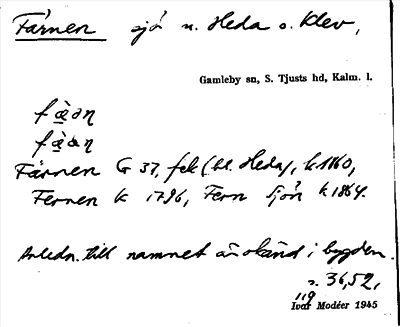 Färnen sjö n. Heda o. Klev,
Gamleby sn, S. Tjusts hd, Kalm. l.
fæ̀an
fæ̀an
Färnen G 37, fek (bl. Heda), k 1860,
Fernen k 1796, Fern Sjön k 1864.
Anledn. till namnet är okänd i bygden.
s. 36, 52,
119
Ivar Modéer 1945